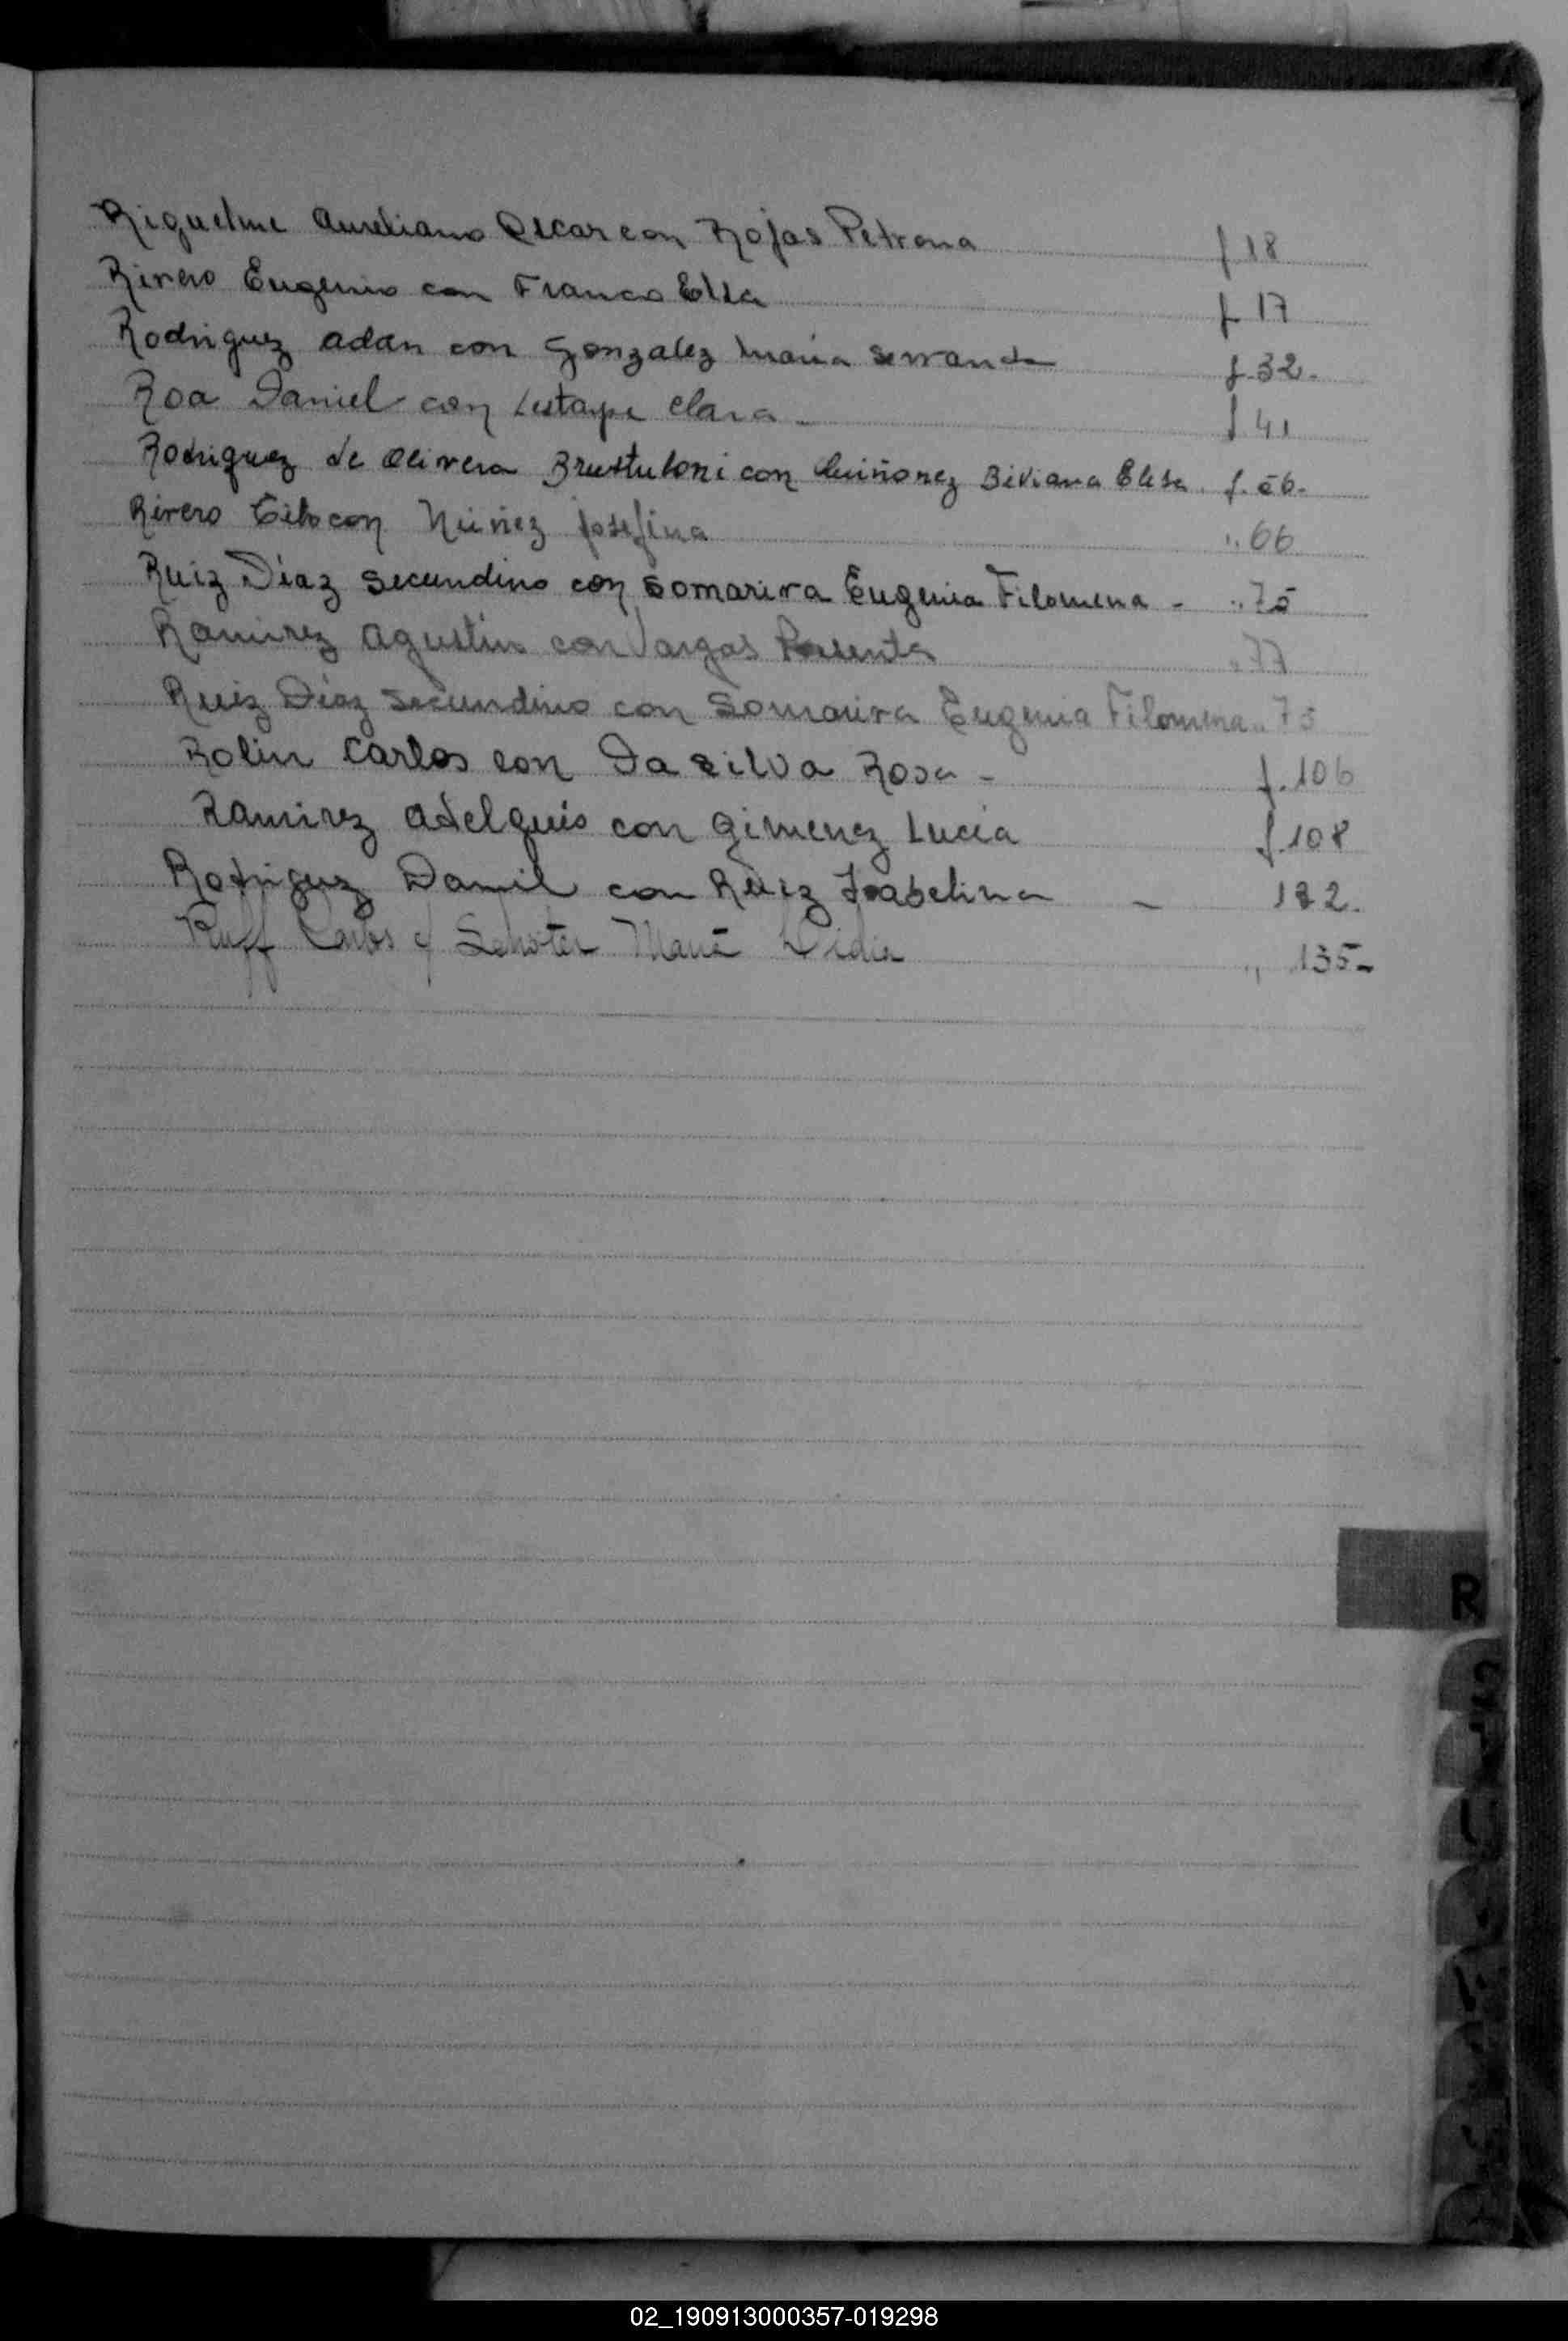 Riquelme Aureliano Oscar con Rojas Petrona f 18
Rivero Eugenio con Franco Elsa f 17
Rodriguez Adan con Gonzalez Maria Servanda f. 32.
Roa Daniel con Lestape Clara - f 41
Rodriguez de Olivera Brustuloni con Quiñonez Biviana Elisa. f. 56.
Rivero Tito con Núñez Josefina " 66
Ruiz Díaz Secundino con Somariva Eugenia Filomena - " 75
Ramirez Agustin con Vargas " 77
Ruiz Díaz Secundino con Somariva Eugenia Filomena " 75
Rolin Carlos con Da Silva Rosa - f. 106
Ramirez Adelquis con Gimenez Lucia f. 108
Rodriguez Daniel con Ruiz Isabelina - 132.
Ruff Carlos c/ Maria Lidia " 135-
R
02_190913000357-019298